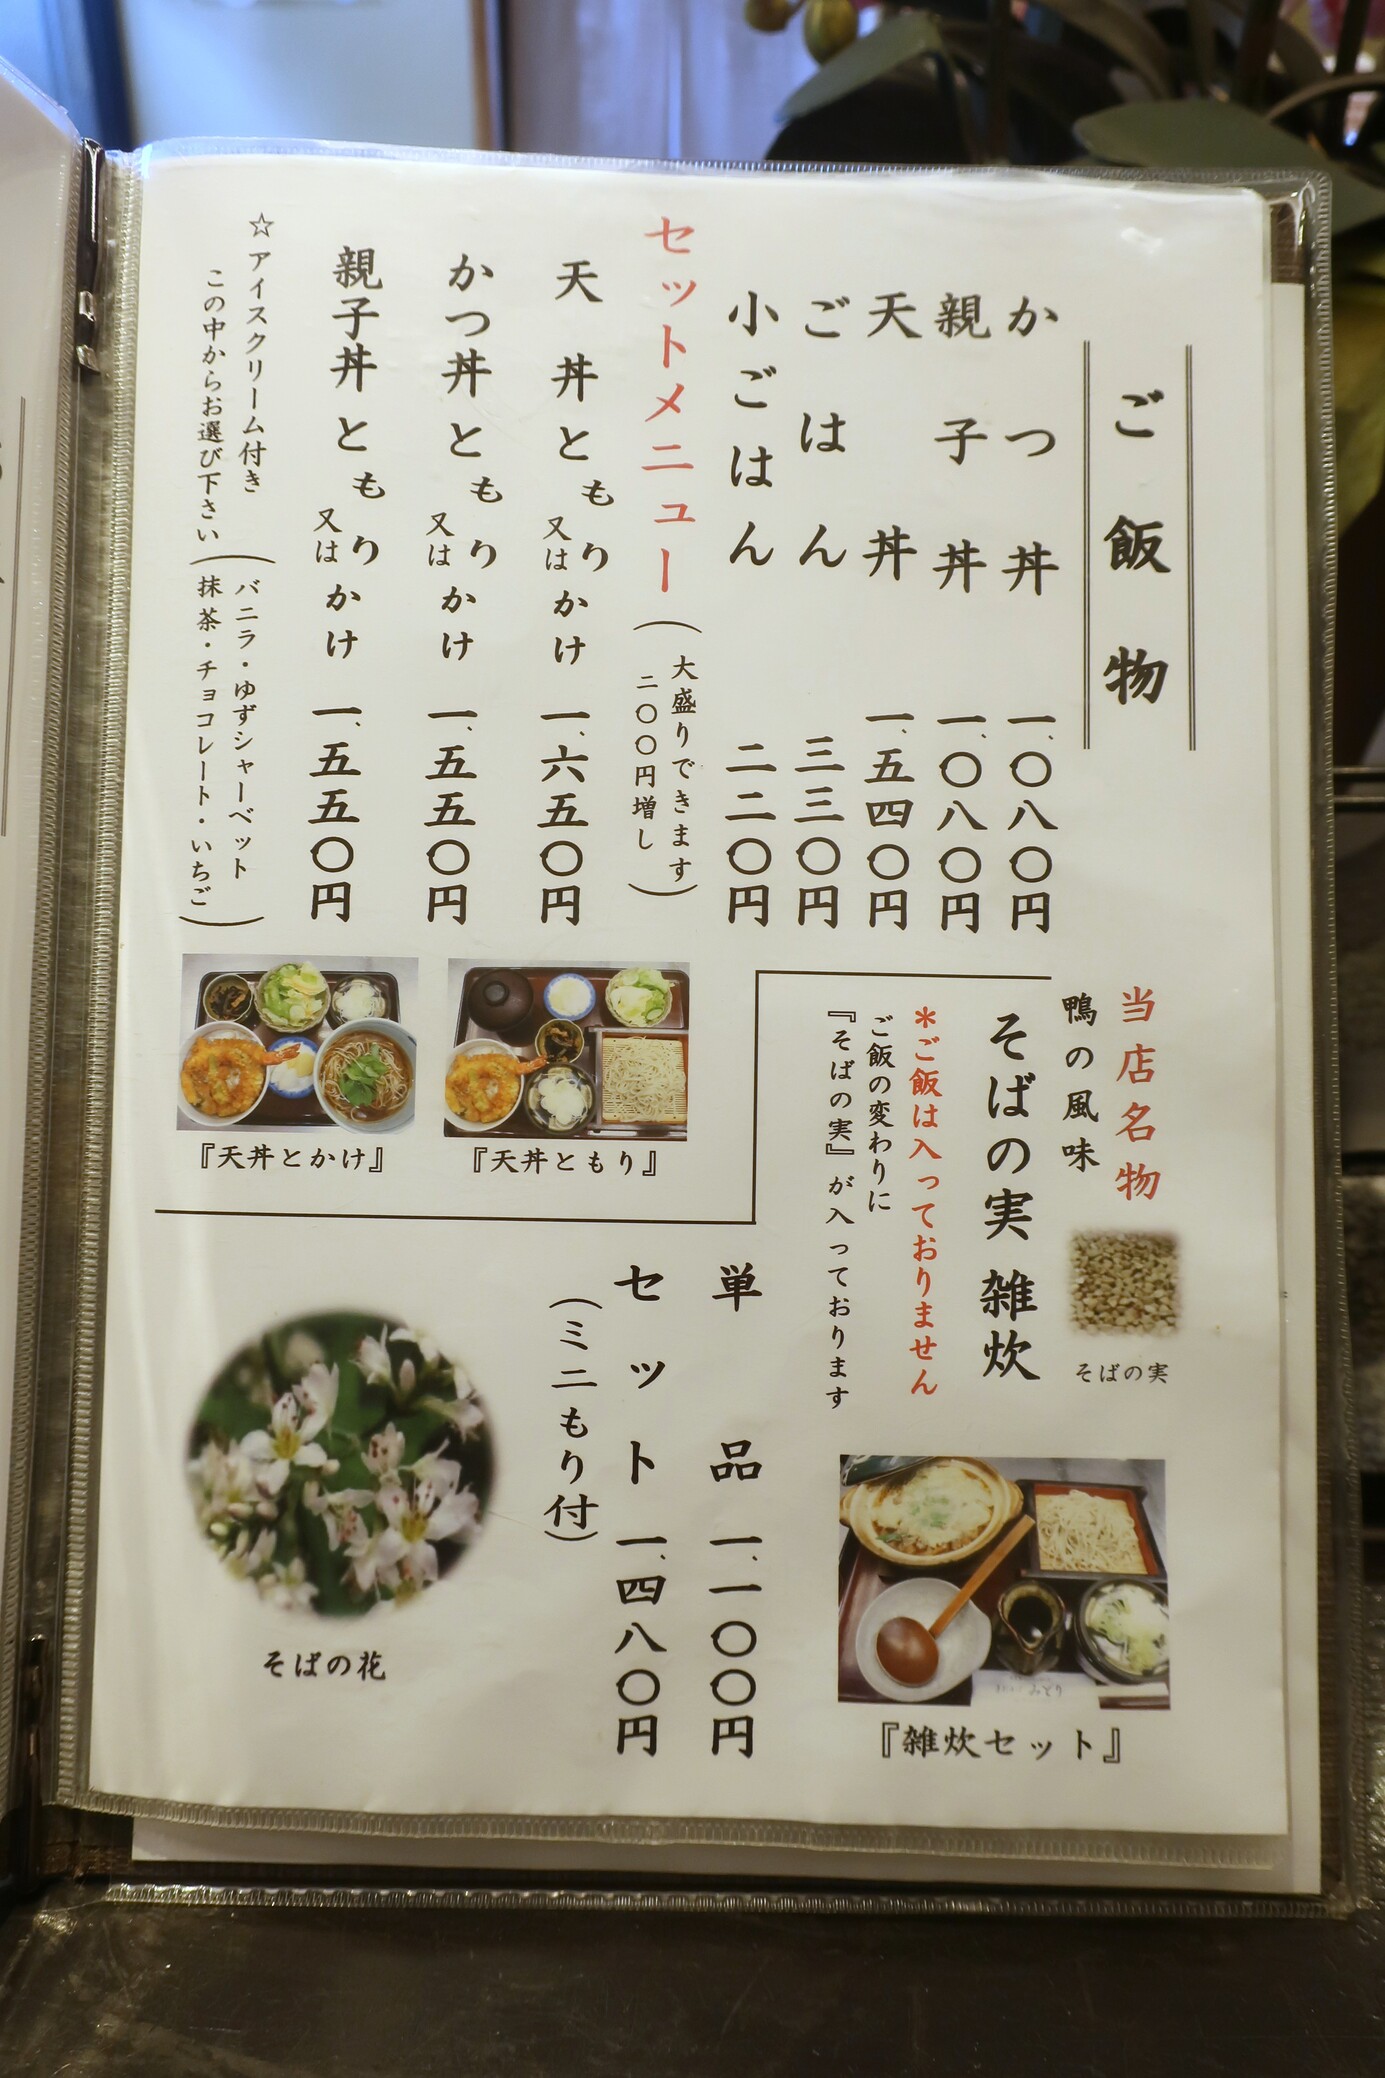 ご飯物
かつ丼 一、〇八〇円
親子丼 一、〇八〇円
天丼 一、五四〇円
ごはん 三三〇円
小ごはん 二二〇円
セットメニュー（大盛りできます
二〇〇円増し）
天丼ともり又はかけ 一、六五〇円
かつ丼ともり又はかけ 一、五五〇円
親子丼ともり又はかけ 一、五五〇円
☆アイスクリーム付き
この中からお選び下さい
（バニラ・ゆずシャーベット
抹茶・チョコレート・いちご）
『天丼ともり』
『天丼とかけ』
当店名物
鴨の風味
そばの実 雑炊
＊ご飯は入っておりません
ご飯の変わりに
『そばの実』が入っております
そばの実
『雑炊セット』
単品 一、一〇〇円
セット 一、四八〇円
（ミニもり付）
そばの花
みとり